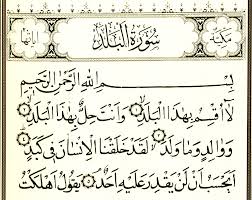 مكية
سورة البلد
آياتها
بِسْمِ اللَّهِ الرَّحْمَنِ الرَّحِيمِ
لَا أُقْسِمُ بِهَذَا الْبَلَدِ وَأَنتَ حِلٌّ بِهَذَا الْبَلَدِ
وَوَالِدٍ وَمَا وَلَدَ لَقَدْ خَلَقْنَا الْإِنسَانَ فِي كَبَدٍ
أَيَحْسَبُ أَن لَّن يَقْدِرَ عَلَيْهِ أَحَدٌ يَقُولُ أَهْلَكْتُ